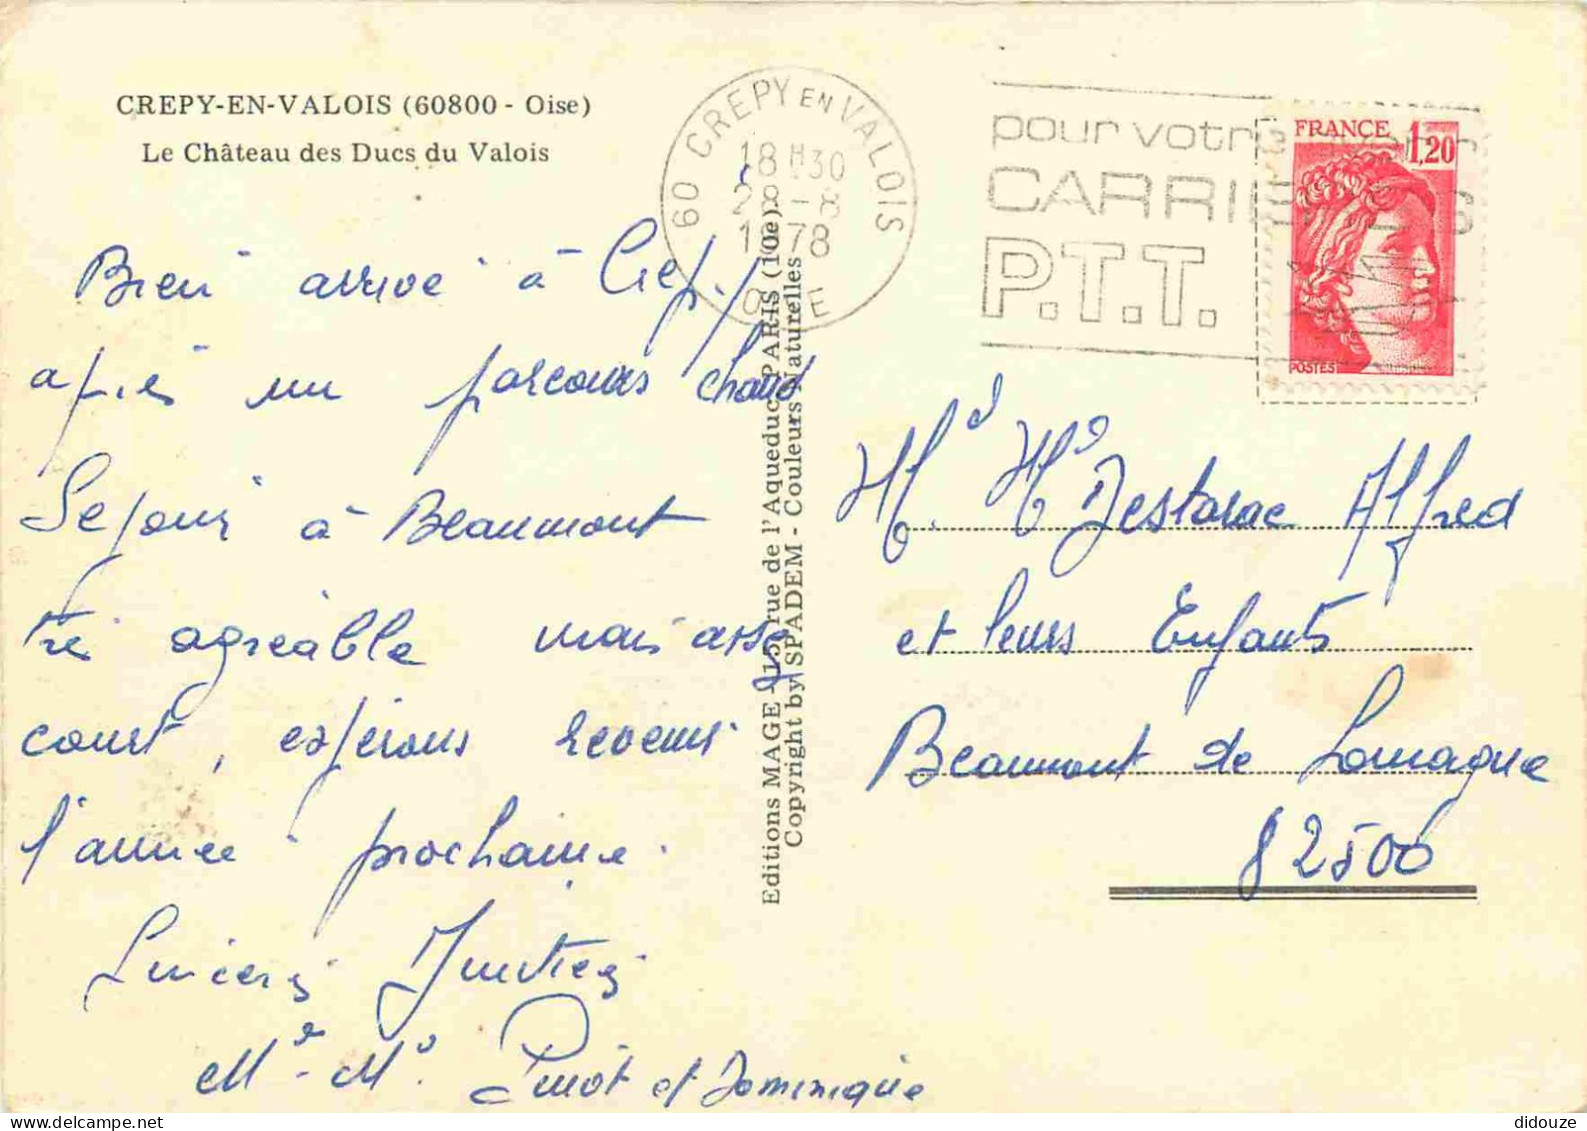 CREPY-EN-VALOIS (60800 - Oise)
Le Château des Ducs du Valois
60 CREPY EN VALOIS
18 H30
28 - 8
1978
OISE
pour votre avenir
CARRIERES
P.T.T.
FRANCE 1,20
POSTES
Bien arrivé à Crépy
après un parcours chaud
Séjour à Beaumont
très agréable mais assez
court, espérons revenir
l'année prochaine.
Sincères Amitiés
Mr. Me. Pinot et Dominique
Editions MAGE 115, rue de l'Aqueduc, PARIS (10e)
Copyright by SPADEM - Couleurs Naturelles
M. et Me Destarac Alfred
et leurs Enfants
Beaumont de Lomagne
82500
didouze